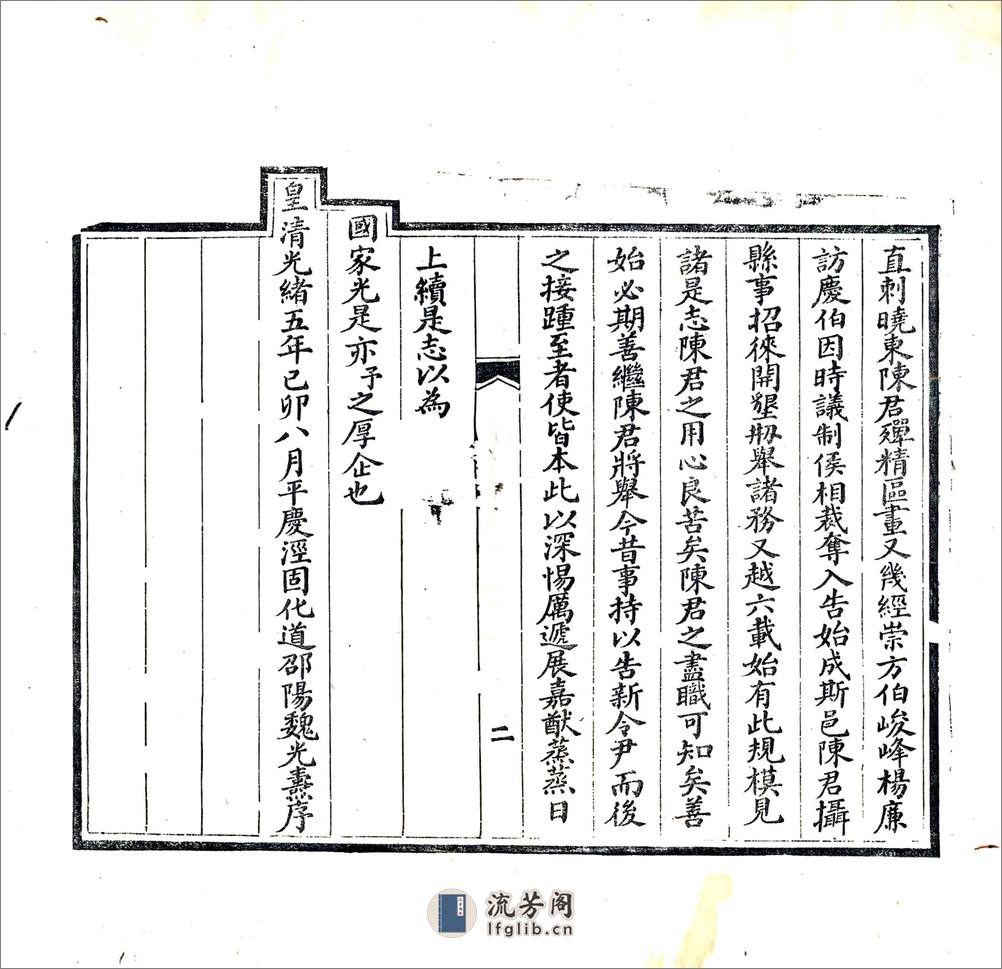 直刺曉東陳君殫精區畫又幾經崇方伯峻峰楊廉
訪慶伯因時議制侯相裁奪入告始成斯邑陳君攝
縣事招徠開墾剏舉諸務又越六載始有此規模見
諸是志陳君之用心良苦矣陳君之盡職可知矣善
始必期善繼陳君將舉今昔事持以告新令尹而後
之接踵至者使皆本此以深惕厲遞展嘉猷蒸蒸日
二
上續是志以為
國家光是亦予之厚企也
皇清光緒五年己卯八月平慶涇固化道邵陽魏光燾序
流芳阁
lfglib.cn